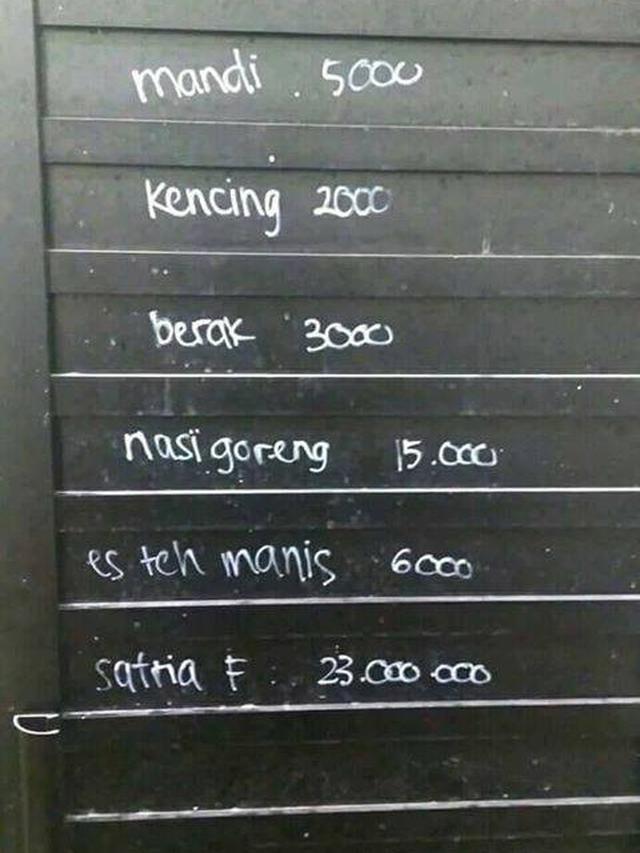 mandi . 5000
kencing 2000
berak 3000
nasi goreng 15.000
es teh manis 6000
satria F : 23.000.000